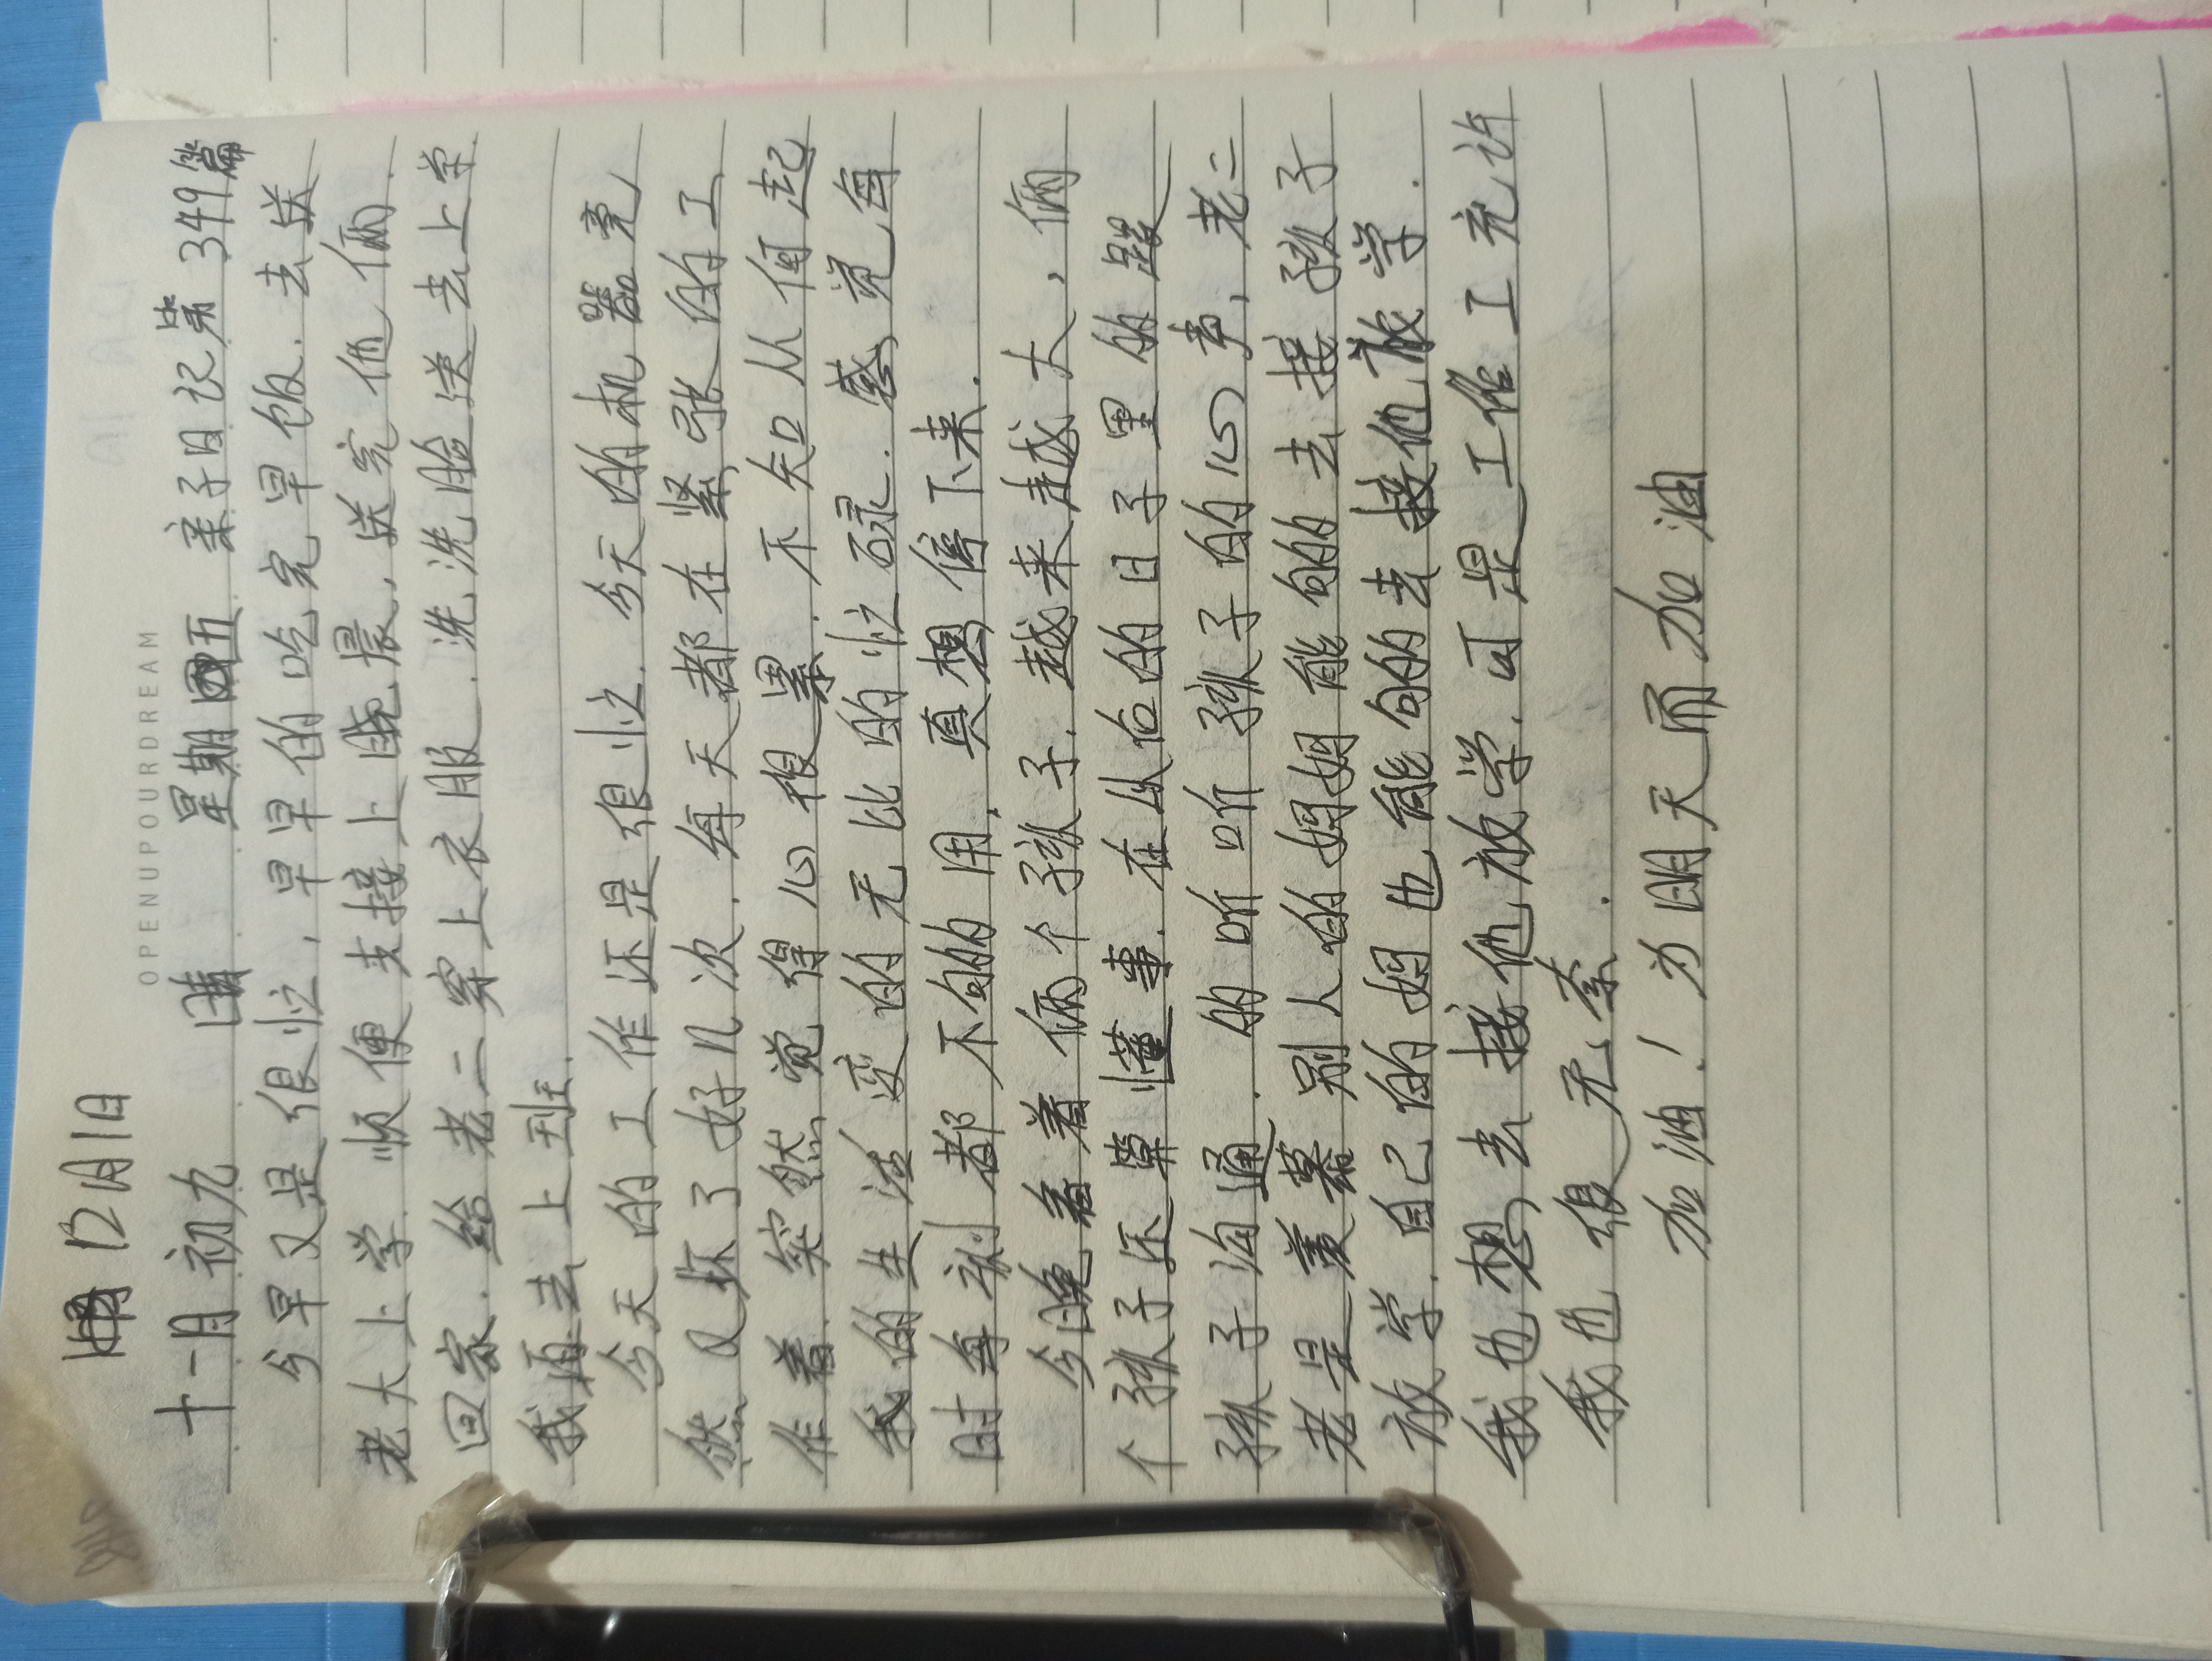 12月1日
OPENUPOURDREAM
十一月初九 晴 星期五 亲子日记第349篇
今早又是很忙，早早的吃完早饭.去送
老大上学.顺便去接上晓晨，送完他俩.
回家.给老二穿上衣服.洗洗脸送去上学.
我再去上班.
今天的工作还是很忙.今天的机器竟
然又坏了好几次.每天都在紧张的工
作着.突然觉得心很累.不知从何起
我的生活变的无比的忙碌.感觉每
时每刻都不够用，真想停下来.
今晚看着俩个孩子.越来越大，俩
个孩子还算懂事.在以后的日子里的跟
孩子沟通.的听听孩子的心声，老二
老是羡慕别人的妈妈能够的去接孩子
放学.自己的妈也能够的去接他放学.
我也想去接他放学.可是工作工充许
我也很无奈.
加油！为明天而加油